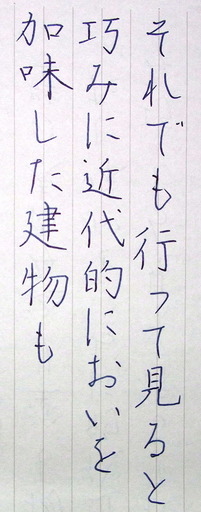 それでも行って見ると
巧みに近代的においを
加味した建物も